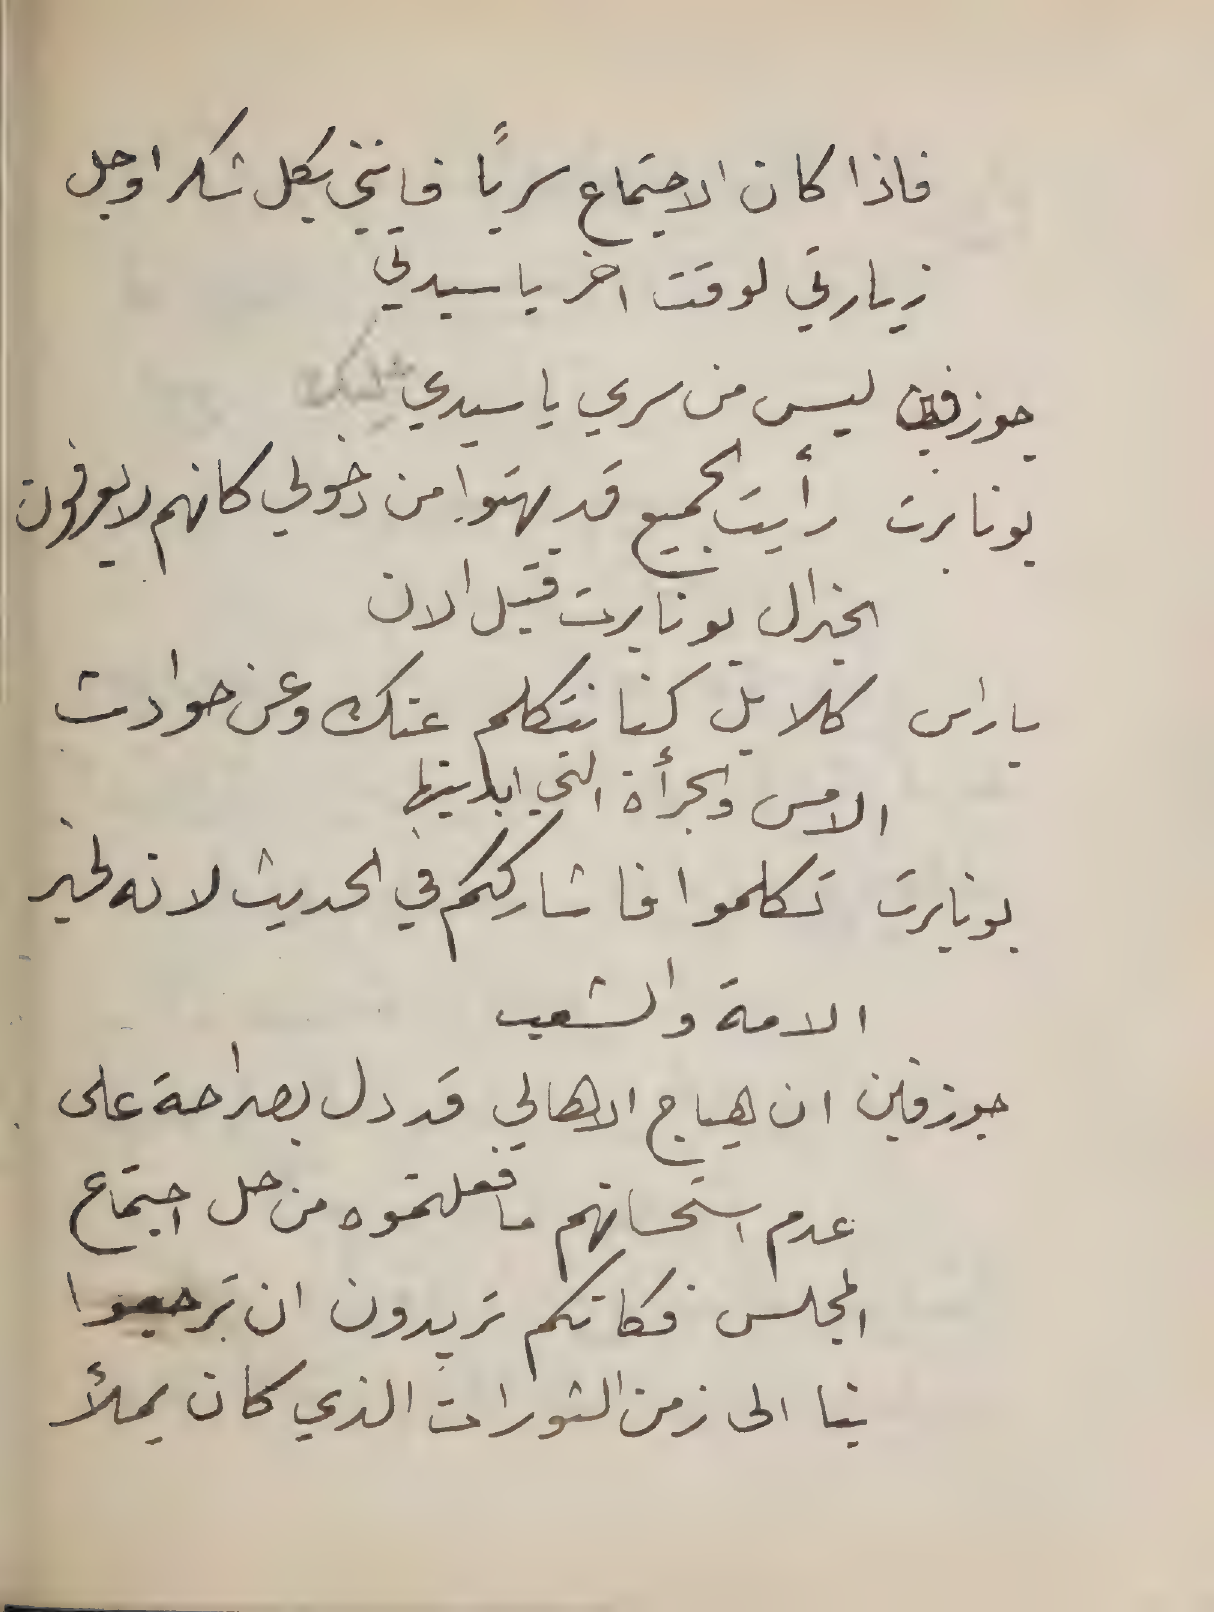 فاذا كان الاجتماع سريًا فانني بكل شكر اوجل
زيارتي لوقت اخر يا سيدتي
جوزفين ليس من سري يا سيدي
بونابرت رأيت الجميع قد بهتوا من دخولي كانهم لا يعرفون
الجنرال بونابرت قبل الان
باراس كلا بل كنا نتكلم عنك وعن حوادث
الامس والجرأة التي ابديتها
بونابرت تكلموا فاشارككم في الحديث لانه لخير
الامة والشعب
جوزفين ان هياج الاهالي قد دل بصراحة على
عدم استحسانهم ما فعلتموه من حل اجتماع
المجلس فكانكم تريدون ان ترجعوا
بنا الى زمن الثورات الذي كان يملأ